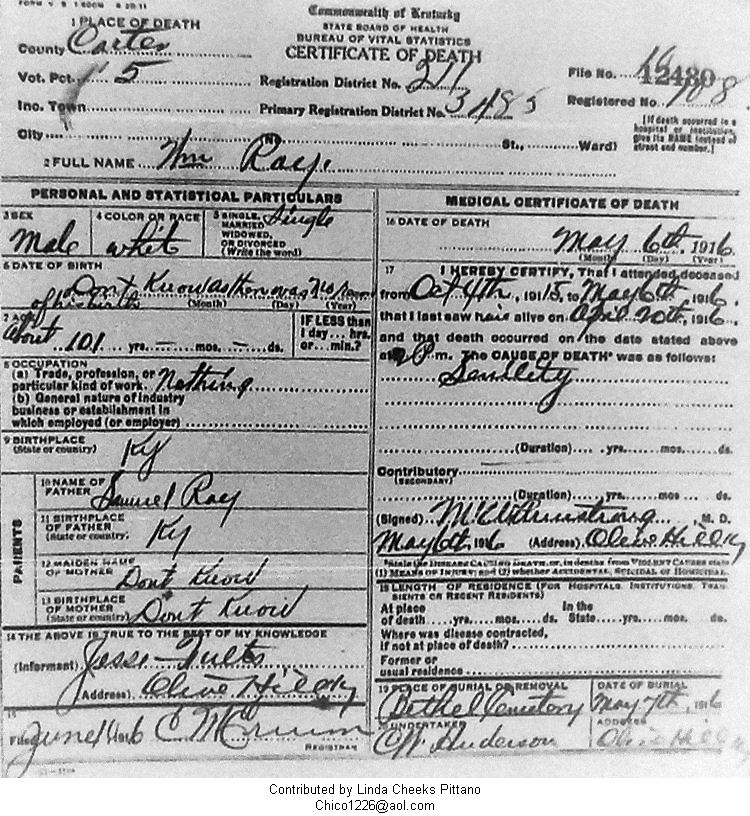 FORM V. S.
Commonwealth of Kentucky
STATE BOARD OF HEALTH
BUREAU OF VITAL STATISTICS
CERTIFICATE OF DEATH
1 PLACE OF DEATH
County Carter
Vot. Pct. 5
Inc. Town
City
Registration District No. 211
Primary Registration District No. 3485
File No. 12480
Registered No. 108
(No. St., Ward)
[If death occurred in a hospital or institution, give its NAME instead of street and number.]
2 FULL NAME Wm Ray.
PERSONAL AND STATISTICAL PARTICULARS
3 SEX
Male
4 COLOR OR RACE
whit
5 SINGLE, MARRIED, WIDOWED, OR DIVORCED (Write the word)
Single
6 DATE OF BIRTH
Dont Know as ther was No
of his birth
(Month) (Day) (Year)
7 AGE
About 101 yrs. — mos. — ds.
IF LESS than
1 day... hrs.
or... min.?
8 OCCUPATION
(a) Trade, profession, or
particular kind of work. Nothing
(b) General nature of industry
business or establishment in
which employed (or employer)
9 BIRTHPLACE
(State or country) Ky
PARENTS
10 NAME OF
FATHER Samuel Ray
11 BIRTHPLACE
OF FATHER
(State or country) Ky
12 MAIDEN NAME
OF MOTHER Dont Know
13 BIRTHPLACE
OF MOTHER
(State or country) Dont Know
14 THE ABOVE IS TRUE TO THE BEST OF MY KNOWLEDGE
(Informant) Jesse Fults
(Address) Olive Hill Ky
15
Filed June 1 1916
REGISTRAR
MEDICAL CERTIFICATE OF DEATH
16 DATE OF DEATH
May 6th, 1916
(Month) (Day) (Year)
17 I HEREBY CERTIFY, That I attended deceased
from Oct 4th, 1915, to May 6th, 1916,
that I last saw him alive on April 20th, 1916,
and that death occurred on the date stated above
at 2 P.m. The CAUSE OF DEATH* was as follows:
Senility
(Duration) yrs. mos. ds.
Contributory
(SECONDARY)
(Duration) yrs. mos. ds.
(Signed) Armstrong M. D.
May 6th, 1916 (Address) Olive Hill Ky
*State the DISEASE CAUSING DEATH, or, in deaths from VIOLENT CAUSES state
(1) MEANS OF INJURY; and (2) whether ACCIDENTAL, SUICIDAL or HOMICIDAL.
18 LENGTH OF RESIDENCE (FOR HOSPITALS, INSTITUTIONS, TRANSIENTS OR RECENT RESIDENTS)
At place
of death yrs. mos. ds.
In the
State yrs. mos. ds.
Where was disease contracted,
if not at place of death?
Former or
usual residence
19 PLACE OF BURIAL OR REMOVAL
Bethel Cemetery
DATE OF BURIAL
May 7th, 1916
20 UNDERTAKER
Henderson
ADDRESS
Olive Hill Ky
Contributed by Linda Cheeks Pittano
Chico1226@aol.com